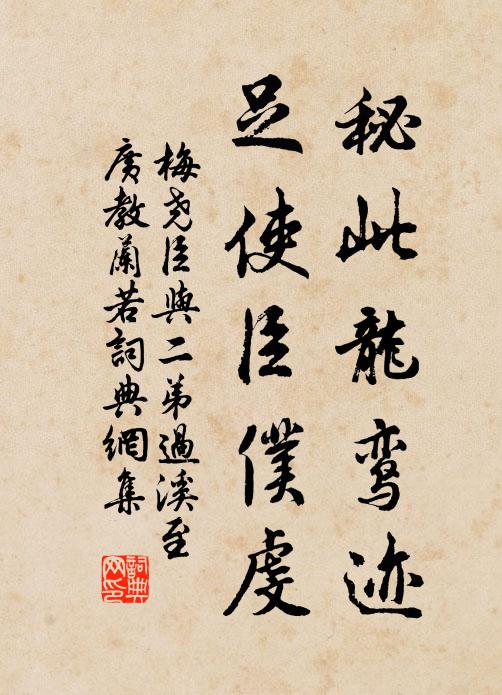 秘此龍鸾迹
足使臣僕虔
梅尧臣與二弟過溪至
廣教蘭若詞典網集
詞典网印